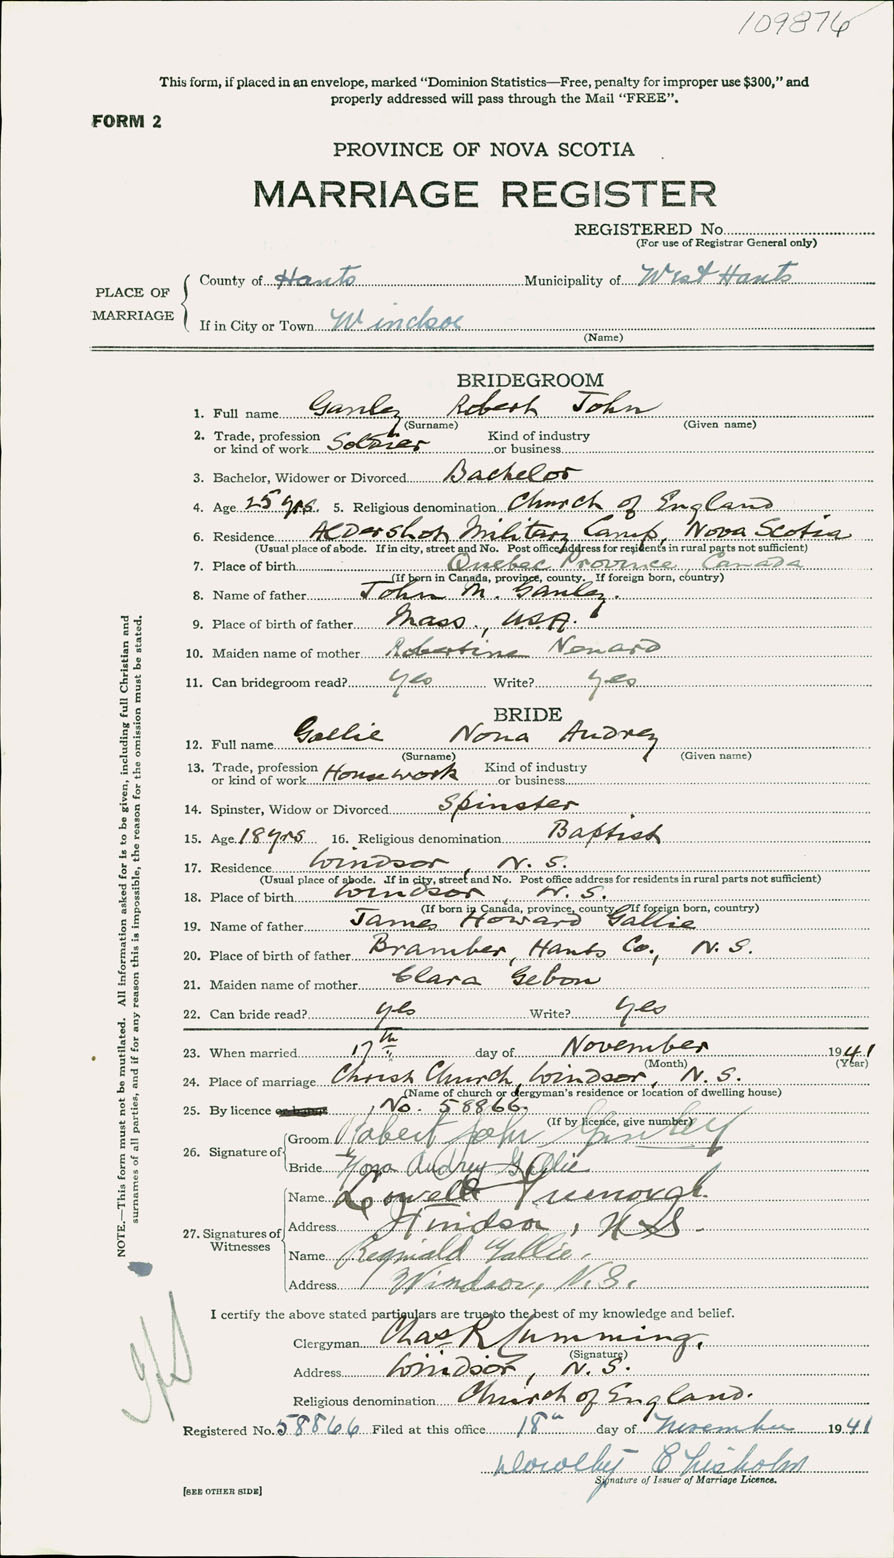 109876
This form, if placed in an envelope, marked "Dominion Statistics—Free, penalty for improper use $300," and
properly addressed will pass through the Mail "FREE".
FORM 2
PROVINCE OF NOVA SCOTIA
MARRIAGE REGISTER
REGISTERED No.
(For use of Registrar General only)
PLACE OF MARRIAGE
County of Hants Municipality of West Hants
If in City or Town Windsor
(Name)
BRIDEGROOM
1. Full name Ganley Robert John
(Surname) (Given name)
2. Trade, profession or kind of work Soldier Kind of industry or business
3. Bachelor, Widower or Divorced Bachelor
4. Age 25 yrs. 5. Religious denomination Church of England
6. Residence Aldershot Military Camp, Nova Scotia
(Usual place of abode. If in city, street and No. Post office address for residents in rural parts not sufficient)
7. Place of birth Quebec Province, Canada
(If born in Canada, province, county. If foreign born, country)
8. Name of father John M. Ganley.
9. Place of birth of father Mass., U.S.A.
10. Maiden name of mother Robertine Nonard
11. Can bridegroom read? yes Write? yes
BRIDE
12. Full name Gallie Nona Audrey
(Surname) (Given name)
13. Trade, profession or kind of work Housework Kind of industry or business
14. Spinster, Widow or Divorced Spinster
15. Age 18 yrs 16. Religious denomination Baptist
17. Residence Windsor, N. S.
(Usual place of abode. If in city, street and No. Post office address for residents in rural parts not sufficient)
18. Place of birth Windsor, N. S.
(If born in Canada, province, county. If foreign born, country)
19. Name of father James Howard Gallie
20. Place of birth of father Bramber, Hants Co., N. S.
21. Maiden name of mother Clara Gebon
22. Can bride read? yes Write? yes
23. When married 17th day of November 1941
(Month) (Year)
24. Place of marriage Christ Church, Windsor, N. S.
(Name of church or clergyman's residence or location of dwelling house)
25. By licence or banns, No. 58866.
(If by licence, give number)
26. Signature of
Groom Robert John Ganley
Bride Nona Audrey Gallie
27. Signatures of Witnesses
Name Lowell
Address Windsor, N.S.
Name Reginald Gallie.
Address Windsor, N.S.
I certify the above stated particulars are true to the best of my knowledge and belief.
Clergyman Chas R Cumming.
(Signature)
Address Windsor, N. S.
Religious denomination Church of England.
Registered No. 58866 Filed at this office 18th day of November 1941
Dorothy Chisholm
Signature of Issuer of Marriage Licence.
[SEE OTHER SIDE]
NOTE.—This form must not be mutilated. All information asked for is to be given, including full Christian and
surnames of all parties, and if for any reason this is impossible, the reason for the omission must be stated.